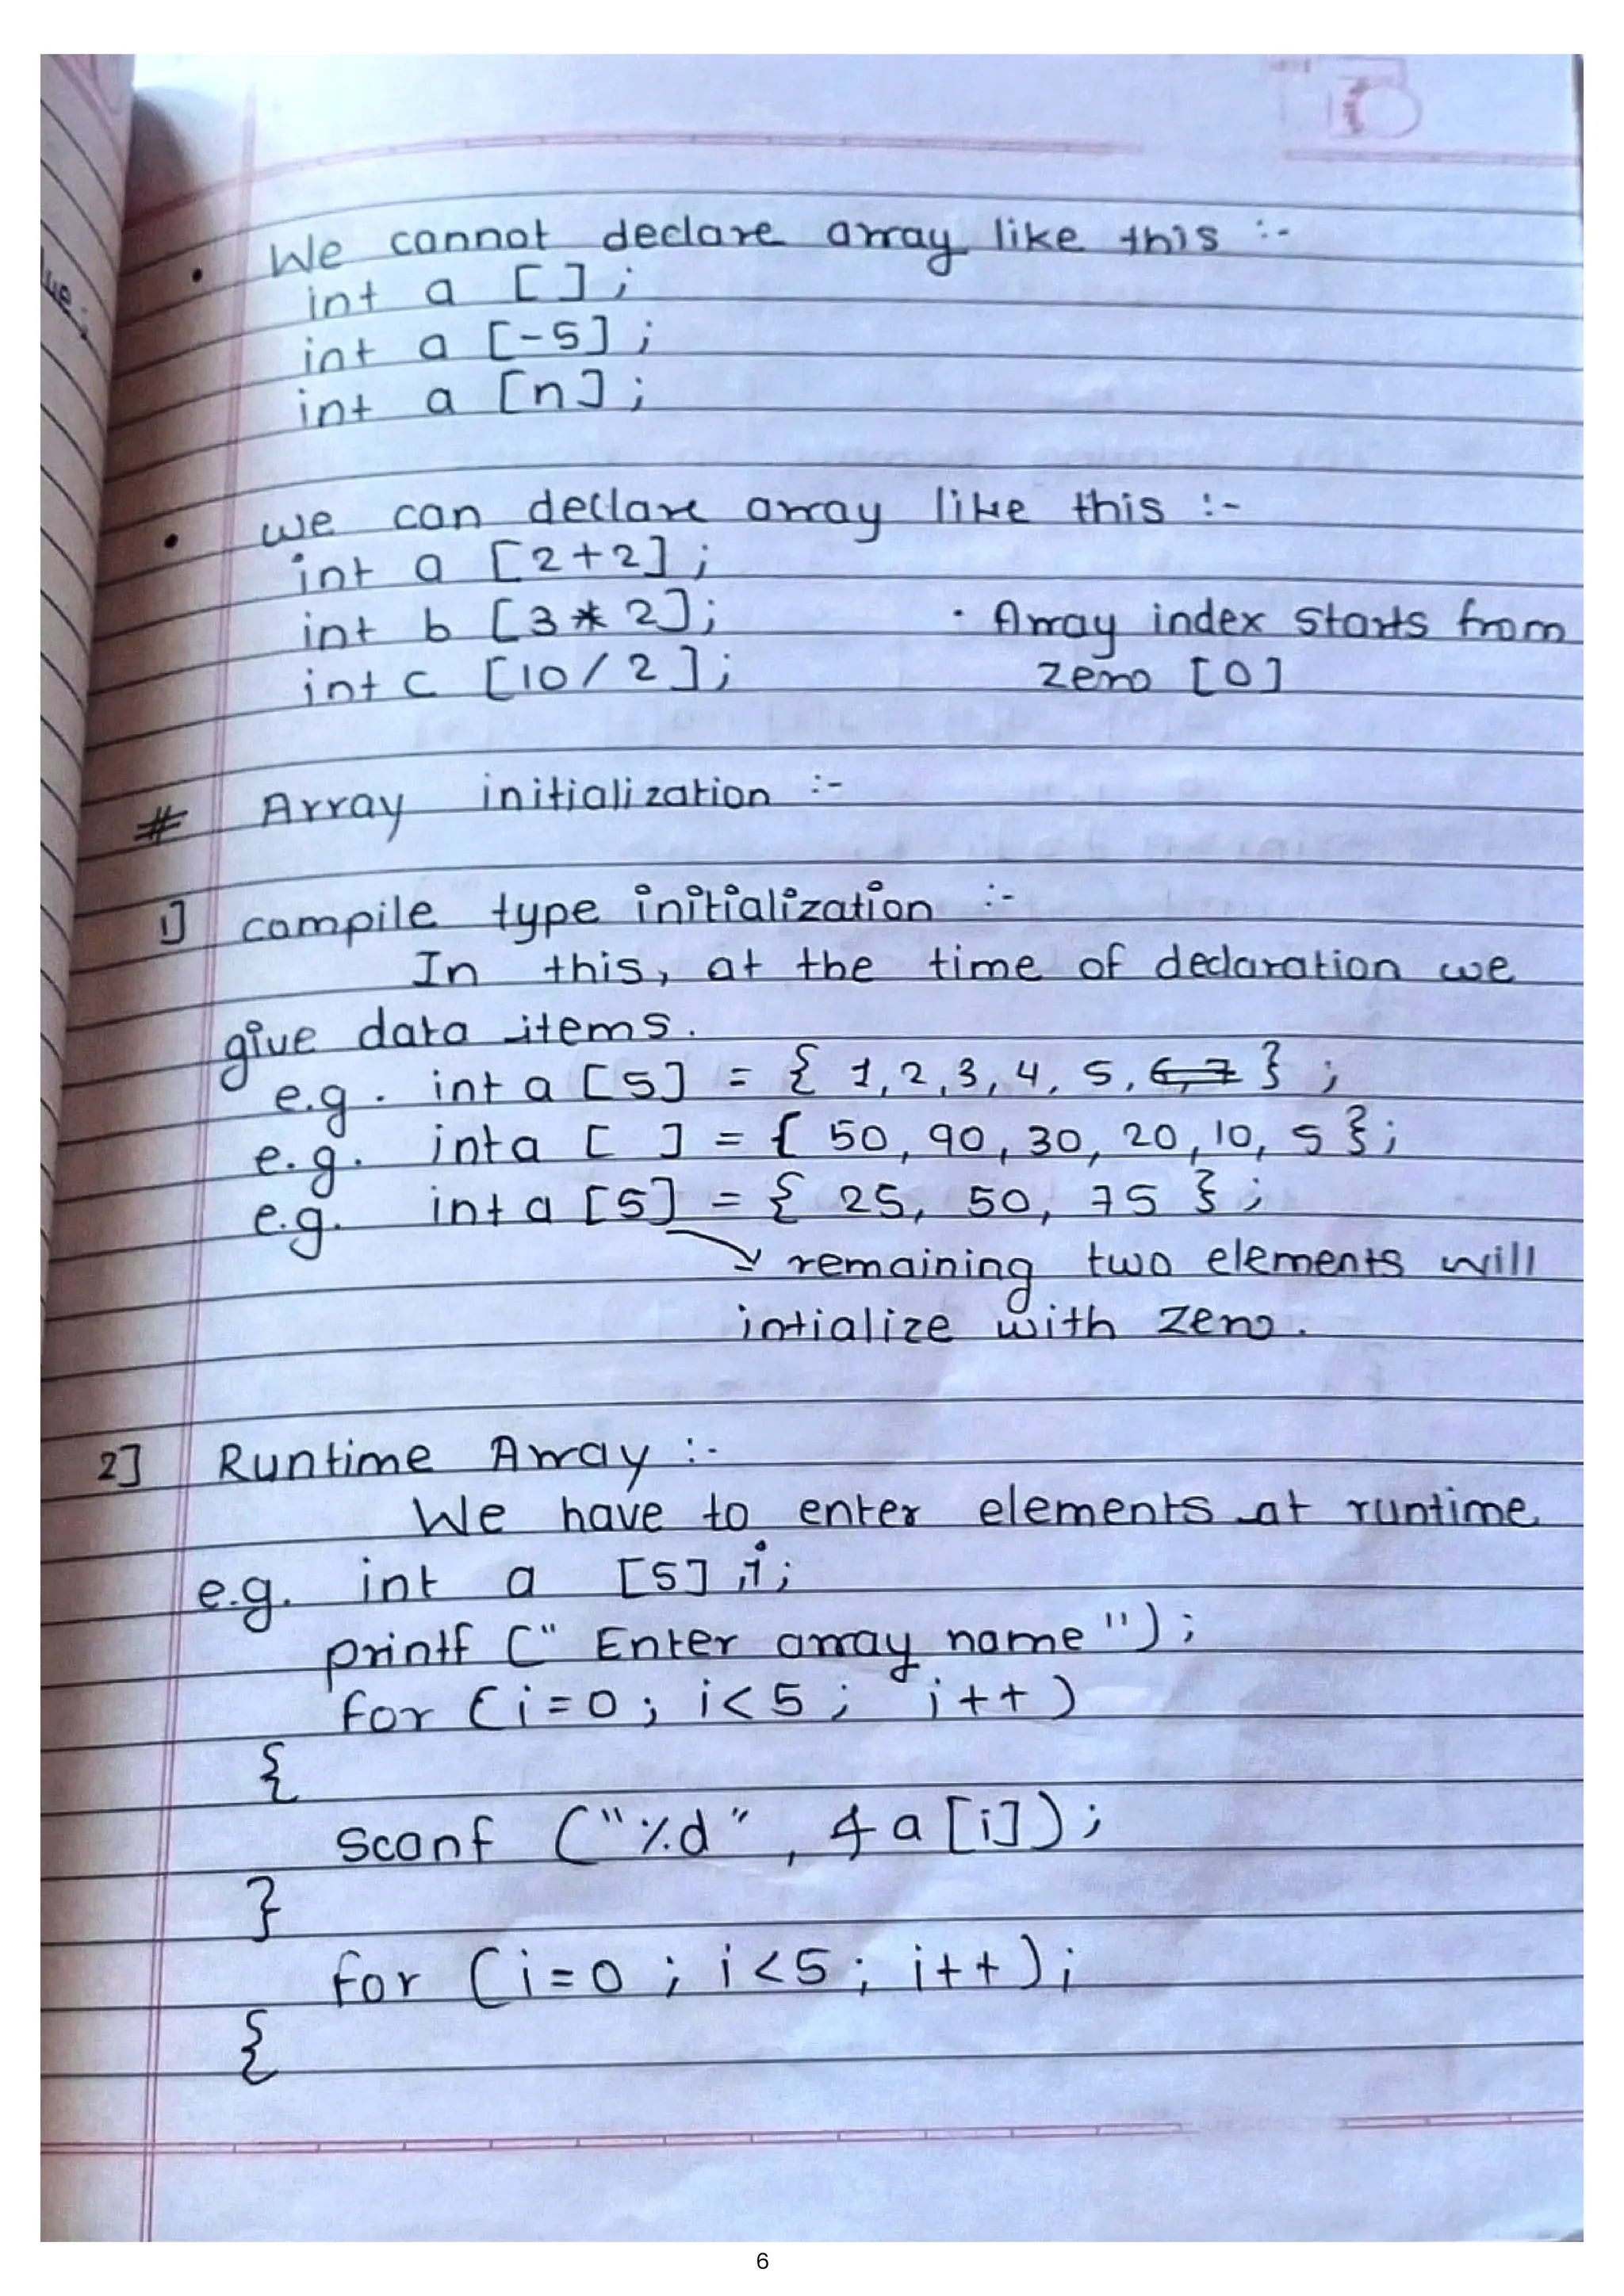 • We cannot declare array like this :-
int a [ ] ;
int a [-5] ;
int a [n] ;
• we can declare array like this :-
int a [2+2] ;
int b [3 * 2];
· Array index starts from
int c [10/2];
zero [0]
# Array initialization :-
1] compile type initialization :-
In this, at the time of declaration we
give data items.
e.g. int a [5] = { 1,2,3,4,5,6,7 } ;
e.g. int a [ ] = { 50, 90, 30, 20, 10, 5 };
e.g. int a [5] = { 25, 50, 75 } ;
remaining two elements will
intialize with zero.
2] Runtime Array :-
We have to enter elements at runtime
e.g. int a [5] ,i ;
printf (" Enter array name ") ;
for (i=0 ; i<5 ; i++)
{
scanf ("%d" , &a[i]) ;
}
for (i=0 ; i<5 ; i++) ;
{
6